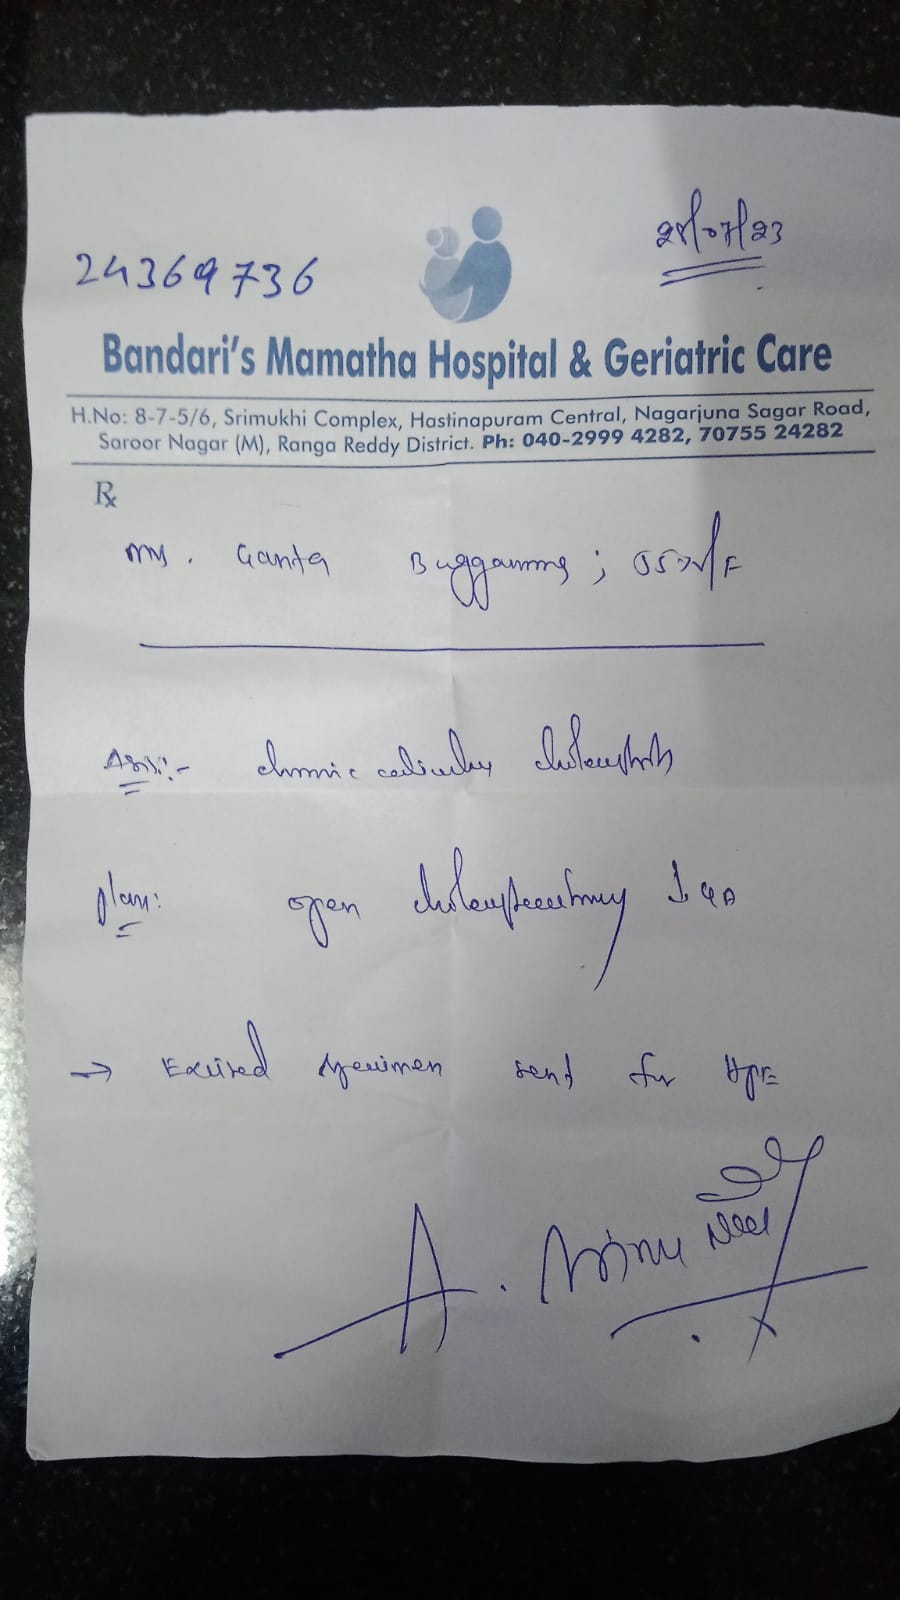 24369736
28/07/23
Bandari's Mamatha Hospital & Geriatric Care
H.No: 8-7-5/6, Srimukhi Complex, Hastinapuram Central, Nagarjuna Sagar Road,
Saroor Nagar (M), Ranga Reddy District. Ph: 040-2999 4282, 70755 24282
Rx
Ganta Buggamma ;
chronic calculus cholecystitis
plan: open cholecystectomy
→ Excised specimen sent for HPE
A.